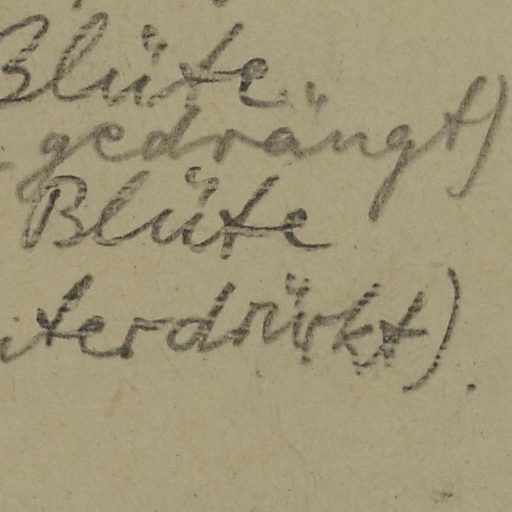 Blüte
gedrängt)
Blüte
terdrükt).